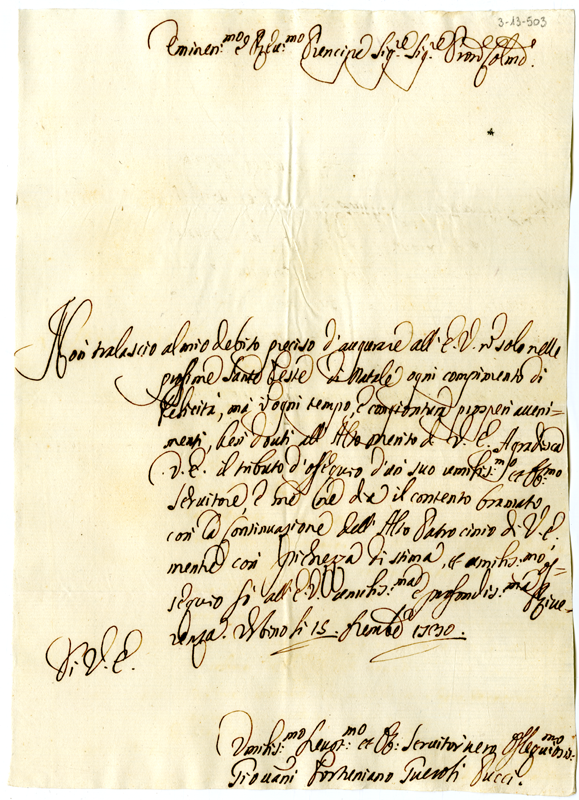 3-13-503
Eminen.mo e Rev.mo Prencipe Sig.re Sig.re Pron Colmo.
Non tralascio al mio debito preciso d'augurare all'E.V. nō solo nelle
prossime Sante Feste di Natale ogni compimento di
felicità, mà in ogni tempo, e prosperi aueni=
menti, ben douti all'Alto merito di V.E. Agradisca
V.E. il tributo d'ossequio d'un suo umilis.mo et Ob.mo
Seruitore e me dia il contento bramato
con la Continuazione dell'Alto Patrocinio di V.E.
mentre con di stima, et umilis.mo os=
sequio fò all'E.V. umilis.ma e profondis.ma Riue=
renza. Vrbino li 15. Xembre 1730.
Di V.E.
Vmilis.mo Deuot.mo et Ob: Seruitor uero Ossequios.mo
Giouani Pucci